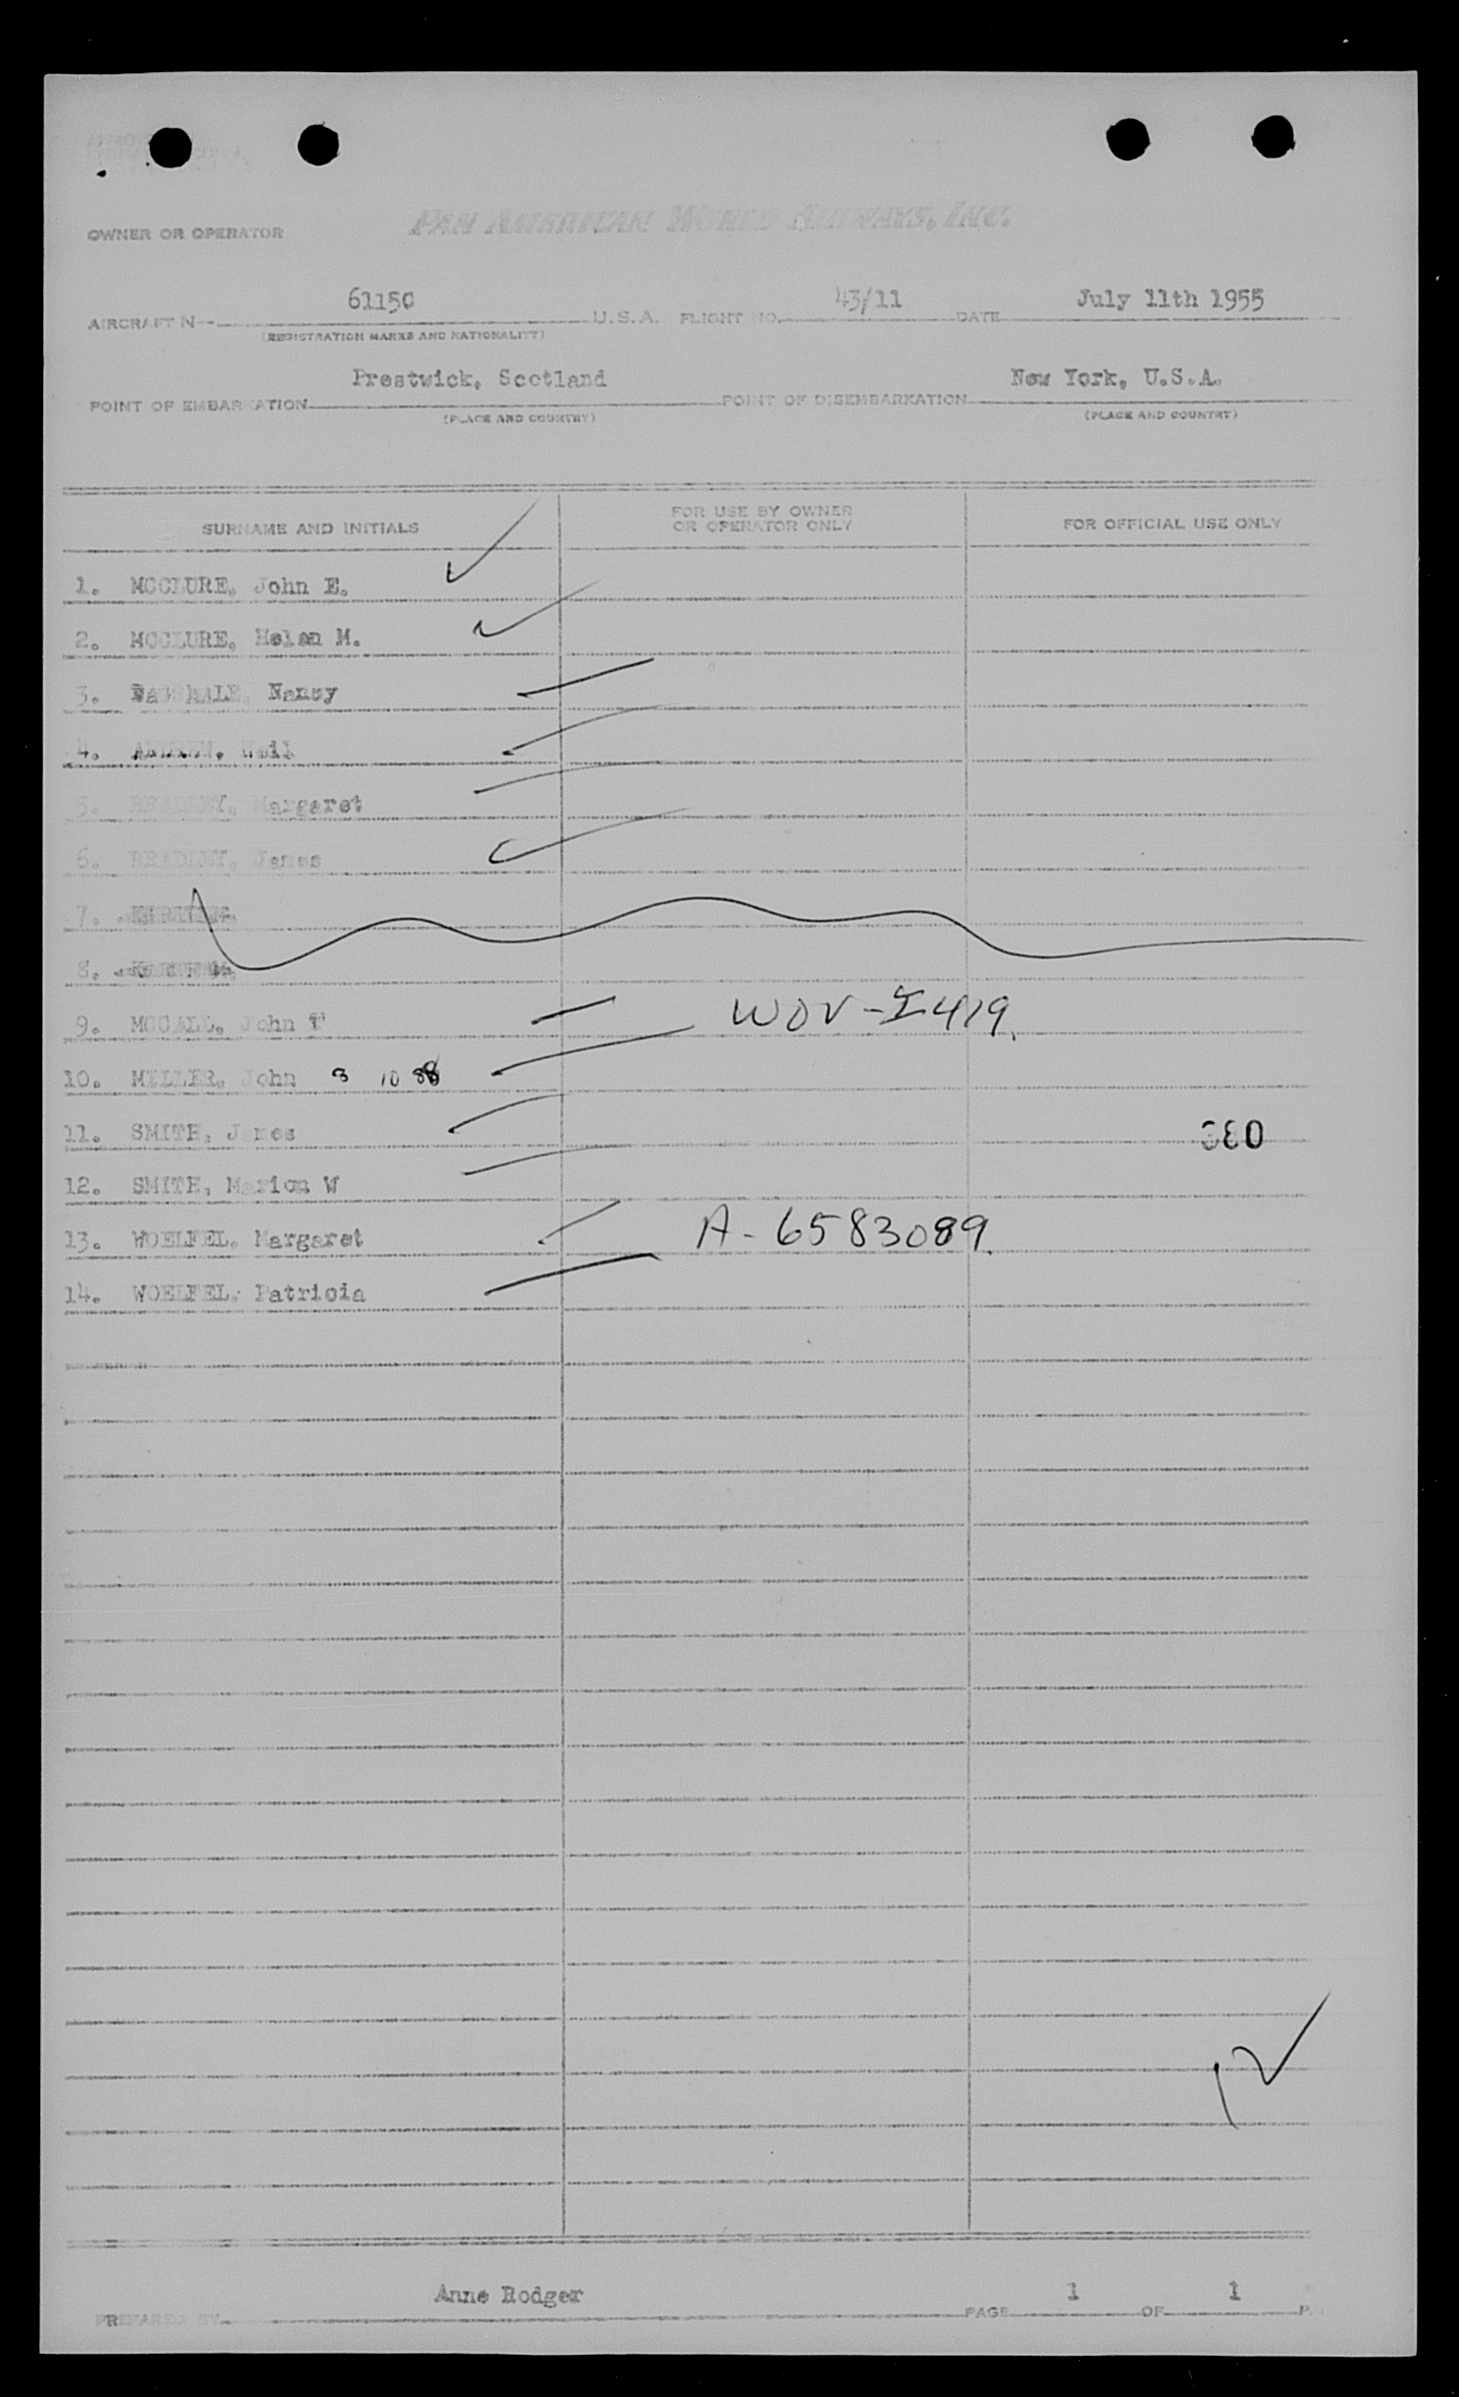 OWNER OR OPERATOR PAN AMERICAN WORLD AIRWAYS, INC.
AIRCRAFT N 61150 U.S.A. FLIGHT NO. 43/11 DATE July 11th 1955
(REGISTRATION MARKS AND NATIONALITY)
POINT OF EMBARKATION Prestwick, Scotland POINT OF DISEMBARKATION New York, U.S.A.
(PLACE AND COUNTRY) (PLACE AND COUNTRY)
SURNAME AND INITIALS FOR USE BY OWNER OR OPERATOR ONLY FOR OFFICIAL USE ONLY
1. MCCLURE, John E.
2. MCCLURE, Helen M.
3. Nancy
4.
5. BRADLEY, Margaret
6. BRADLEY, James
7.
8.
9. MCCALL, John T WOV-I419.
10. MILLER, John 3 10 88
11. SMITH, James 380
12. SMITH, Marion W
13. WOELFEL, Margaret A-6583089.
14. WOELFEL, Patricia
12
PREPARED BY Anne Rodger PAGE 1 OF 1 P